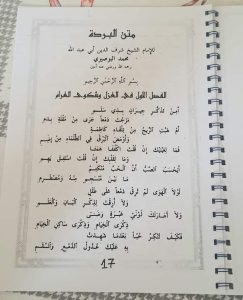 متن البردة
للإمام الشيخ شرف الدين أبي عبد الله
محمد البوصيري
بسم الله الرحمن الرحيم
الفصل الأول في الغزل وشكوى الغرام
أمن تذكر جيران بذي سلم
مزجت دمعا جرى من مقلة بدم
أم هبت الريح من تلقاء كاظمة
وأومض البرق في الظلماء من إضم
فما لعينيك إن قلت اكففا همتا
وما لقلبك إن قلت استفق يهم
أيحسب الصب أن الحب منكتم
ما بين منسجم منه ومضطرم
لولا الهوى لم ترق دمعا على طلل
ولا أرقت لذكر البان والعلم
ولا أعارتك لوني عبرة وضنى
ذكرى الخيام وذكرى ساكني الخيام
فكيف تنكر حبا بعدما شهدت
به عليك عدول الدمع والسقم
17